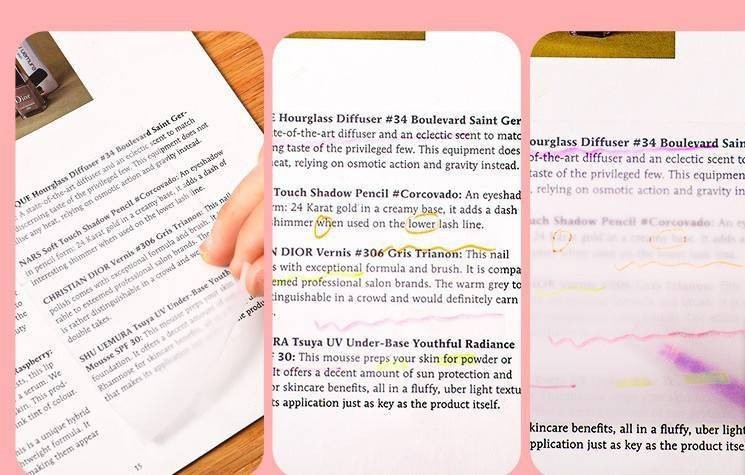 Dior
QUE Hourglass Diffuser #34 Boulevard Saint Ger-
A state-of-the-art diffuser and an eclectic scent to match
discerning taste of the privileged few. This equipment does not
use any heat, relying on osmotic action and gravity instead.
NARS Soft Touch Shadow Pencil #Corcovado: An eyeshadow
in pencil form: 24 Karat gold in a creamy base, it adds a dash of
interesting shimmer when used on the lower lash line.
CHRISTIAN DIOR Vernis #306 Gris Trianon: This nail
polish comes with exceptional formula and brush. It
rable to esteemed professional salon brands. The warm
is rather distinguishable in a crowd and wo
double takes.
SHU UEMURA Tsuya UV Under-Base Youth
Mousse SPF 30: This mousse preps your skin
foundation. It offers a decent amount of sun
Rhamnose for skincare benefits, all in
that makes its application
to the
but
aspberry:
its, this lip
a serum. We
kin. This prod-
nk tint of colour.
his is a unique hybrid
htweight formula. It
making them appear
15
E Hourglass Diffuser #34 Boulevard Saint Ger
te-of-the-art diffuser and an eclectic scent to matc
ng taste of the privileged few. This equipment does
eat, relying on osmotic action and gravity instead.
Touch Shadow Pencil #Corcovado: An eyeshad
rm: 24 Karat gold in a creamy base, it adds a dash
shimmer when used on the lower lash line.
N DIOR Vernis #306 Gris Trianon: This nail
s with exceptional formula and brush. It is compa
emed professional salon brands. The warm grey to
tinguishable in a crowd and would definitely earn
.
RA Tsuya UV Under-Base Youthful Radiance
F 30: This mousse preps your skin for powder or
It offers a decent amount of sun protection and
or skincare benefits, all in a fluffy, uber light textu
ts application just as key as the product itself.
ourglass Diffuser #34 Boulevard Saint
of-the-art diffuser and an eclectic scent to
taste of the privileged few. This equipmen
, relying on osmotic action and gravity in
uch Shadow Pencil #Corcovado: An eye
24 Karat gold in a creamy base, it adds a
kincare benefits, all in a fluffy, uber light
pplication just as key as the product itse